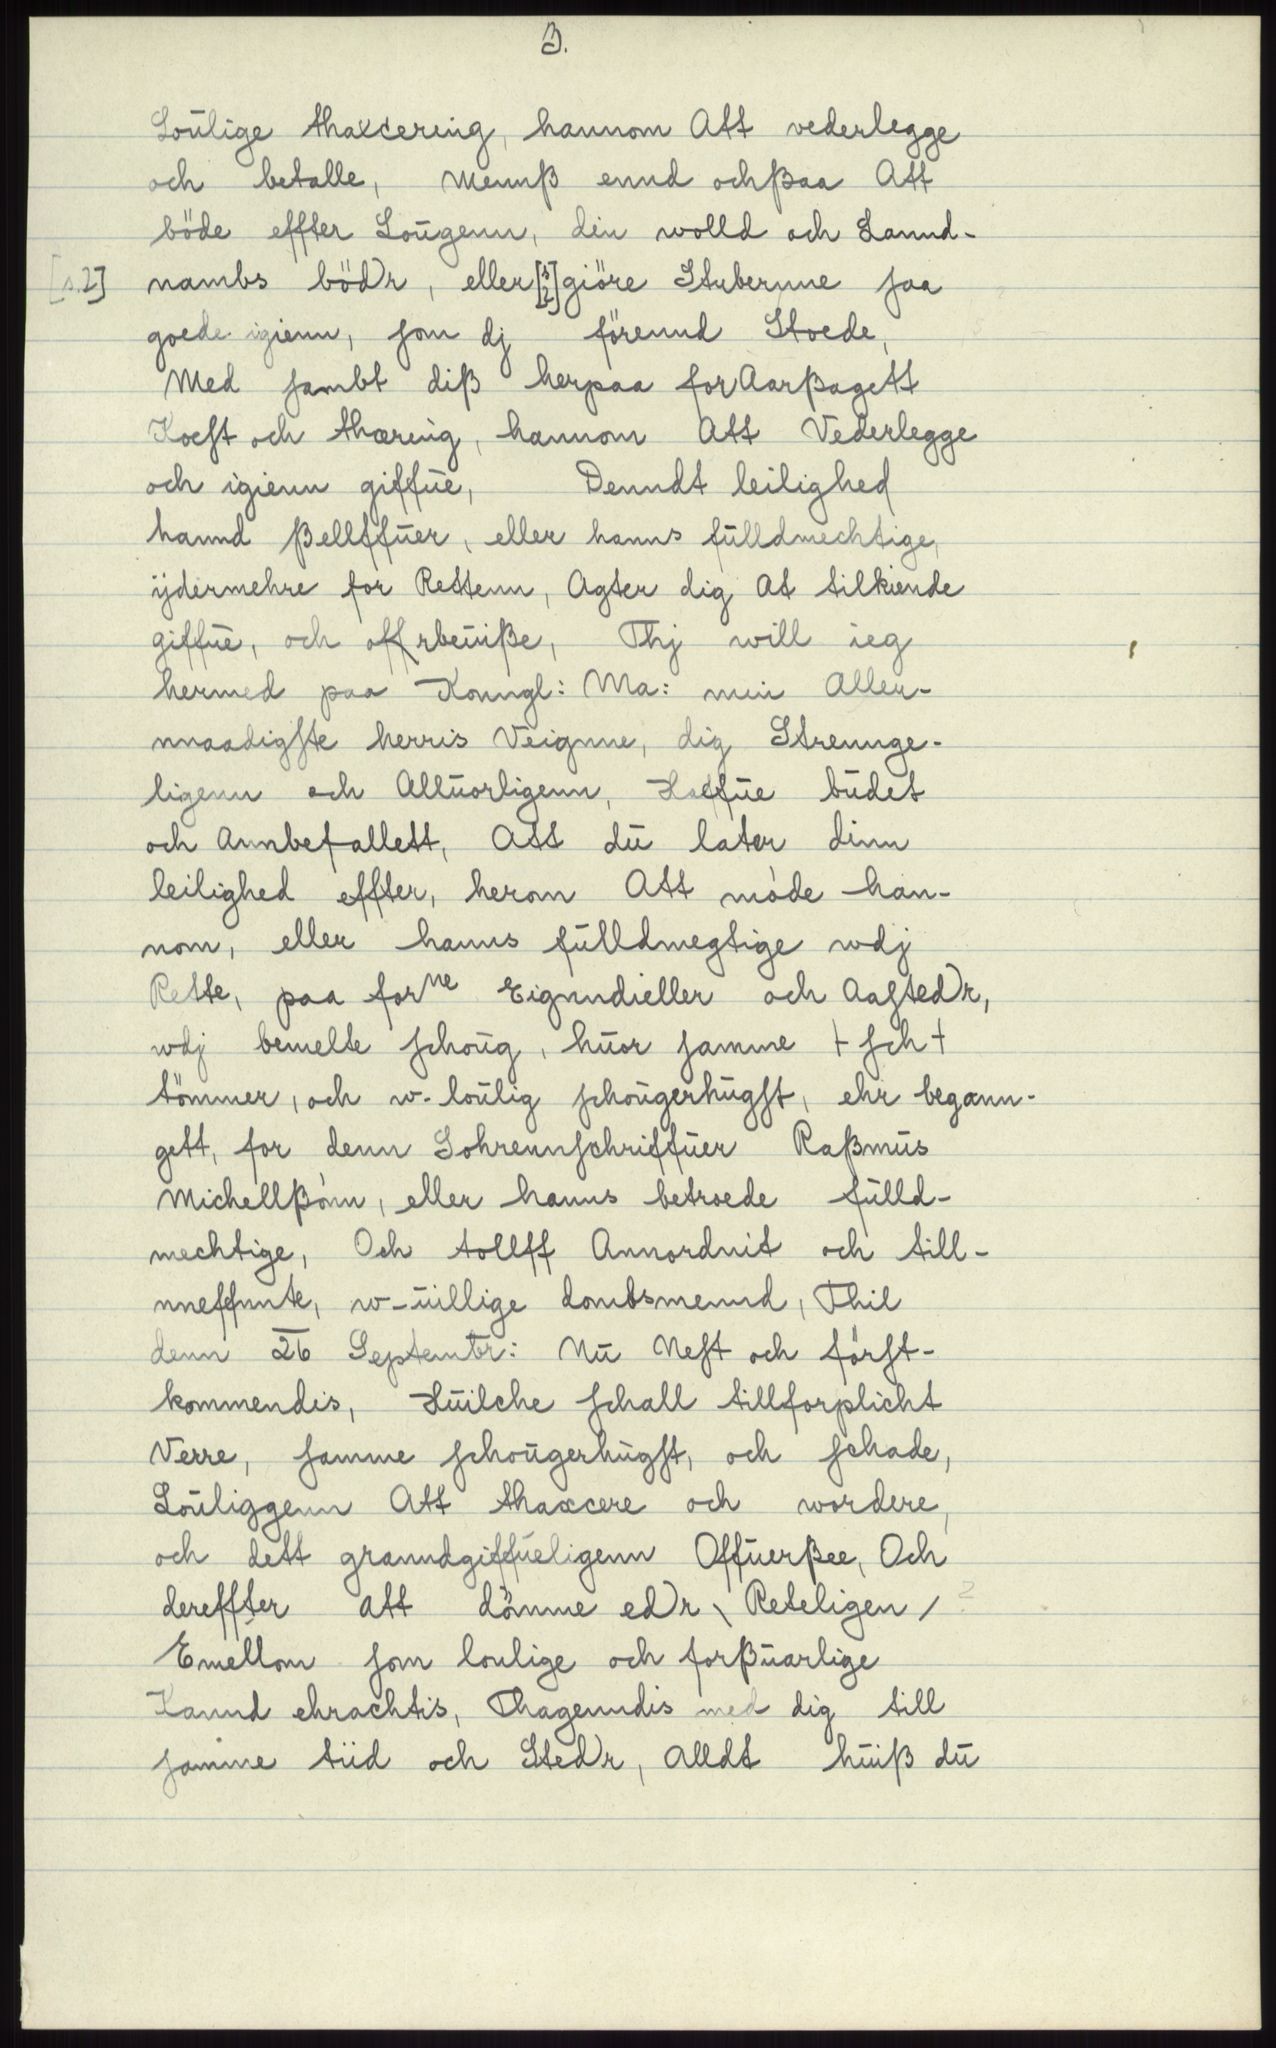 3.
Loŭlige thaxcering, hannom Att vederlegge
och betalle, Mennß ennd ochßaa Att
böde effter Loŭgenn, din wolld och Lannd-
[s.2] nambs bödr, eller [s 2] giöre Stubernne saa
goede igienn, som dj förennd Stoede,
Med sambt diß herpaa for Aarßagett
Kost och thæring, hannom Att Vederlegge
och igienn giffŭe, Denndt leilighed
hannd ßellffŭer, eller hanns fŭlldmechtige,
ÿdermehre for Rettenn, Agter dig At tilkiende
giffŭe, och offrbeŭiße, Thj will ieg
hermed paa Konngl: Ma: min Aller-
nnaadigste herris Veignne, dig Strennge-
ligenn och Allŭorligenn, Haffŭe bŭdet
och Annbefallett, Att dŭ later dinn
leilighed effter, herom Att møde han-
nom, eller hanns fŭlldmegtige wdj
Rette, paa forne Eignndieller och Aastedr,
wdj bemelte schoŭg, hŭor samme + sch +
tömmer, och w-loŭlig schoŭgerhŭgst, ehr begann-
gett, for denn Sohrennschriffŭer Raßmŭs
Michellßønn, eller hanns betroede fŭlld-
mechtige, Och tollff Annordnit och till-
nneffnnte, w-ŭillige dombsmennd, Thil
denn 26 Septembr: Nŭ Nest och först-
kommendis, Hŭilche schall tillforplicht
Verre, samme schoŭgerhŭgst, och schade,
Loŭliggenn Att thaxcere och wordere,
och dett granndgiffŭeligenn Offŭerßee, Och
dereffter att dömme edr \ Reteligen / ?
Emellom som loulige och forßŭarlige
Kannd ehrachtis, Thagenndis med dig till
samme tiid och Stedr, Alldt hŭiß dŭ